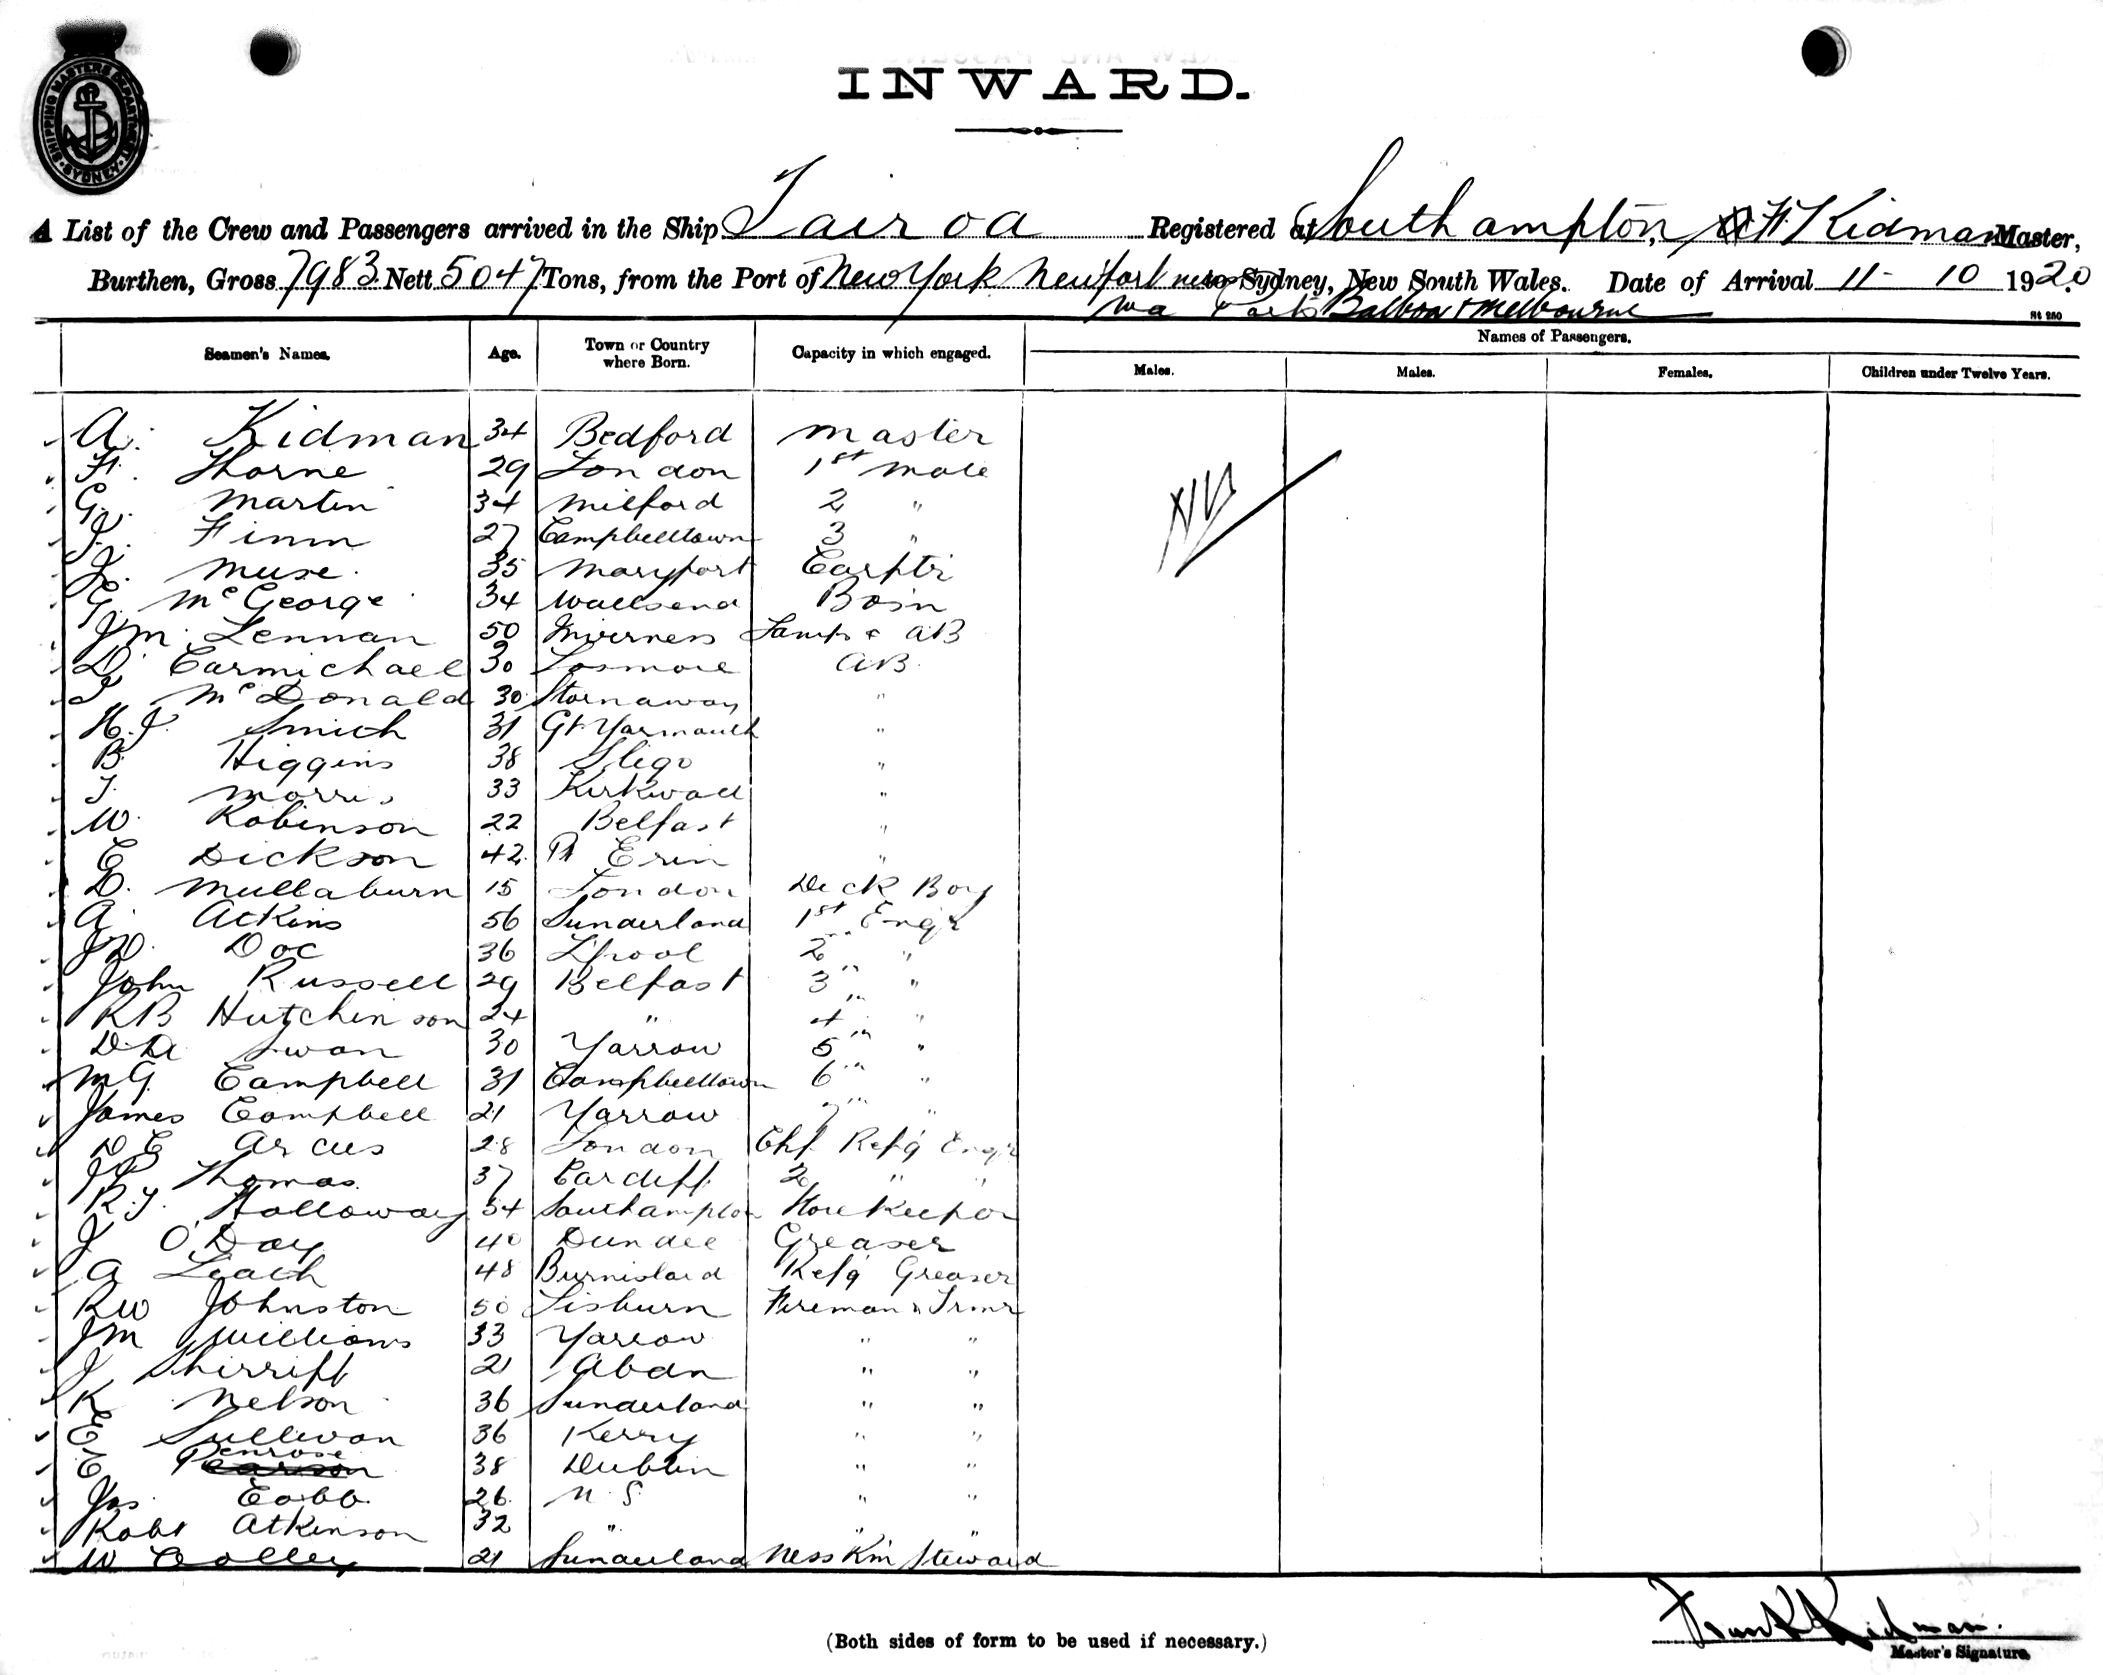 SHIPPING MASTERS DEPARTMENT SYDNEY
INWARD.
A List of the Crew and Passengers arrived in the Ship Tairoa Registered at Southampton, F. Kidman Master,
Burthen, Gross 7983 Nett 5047 Tons, from the Port of New York Newport to Sydney, New South Wales. Date of Arrival 11 - 10 1920.
via Balboa & Melbourne
St 250
Seamen's Names. Age. Town or Country where Born. Capacity in which engaged. Names of Passengers.
Males. Males. Females. Children under Twelve Years.
A. Kidman 34 Bedford Master
F. Thorne 29 London 1st Mate
G. Martin 34 Milford 2 "
J. Finn 27 Campbelltown 3 "
J. Muse 35 Maryport Carptr
G. McGeorge 34 Wallsend Bosn
J M. Lennan 50 Inverness Lamps & AB
D. Carmichael 30 Lismore AB
J McDonald 30 Stornaway "
H. J. Smith 31 Gt Yarmouth "
B. Higgins 38 Sligo "
J. Morris 33 Kirkwall "
W. Robinson 22 Belfast "
E Dickson 42 Pt Erin "
D. Mullaburn 15 London Deck Boy
A. Atkins 56 Sunderland 1st Engr
J D. Doc 36 L'pool 2 "
John Russell 29 Belfast 3 "
R B Hutchinson 24 " 4 "
D. A Swan 30 Yarrow 5 "
M G. Campbell 31 Campbelltown 6 "
James Campbell 21 Yarrow 7 "
D E Arcus 28 London Chf Refg Engr
Thomas 37 Cardiff 2 " "
R. J. Holloway 34 Southampton Storekeeper
J O'Day 40 Dundee Greaser
A Leach 48 Refg Greaser
R W Johnston 50 Lisburn Fireman & Trmr
J M Williams 33 Yarrow " "
J Shirriff 21 Aban " "
K Nelson 36 Sunderland " "
E Sullivan 36 Kerry " "
E Penrose 38 Dublin " "
Jas Cobb 26 N. S. " "
Robt Atkinson 32 " " "
W Colley 21 Sunderland Mess Rm Steward
Nil
Frank Kidman.
Master's Signature.
(Both sides of form to be used if necessary.)